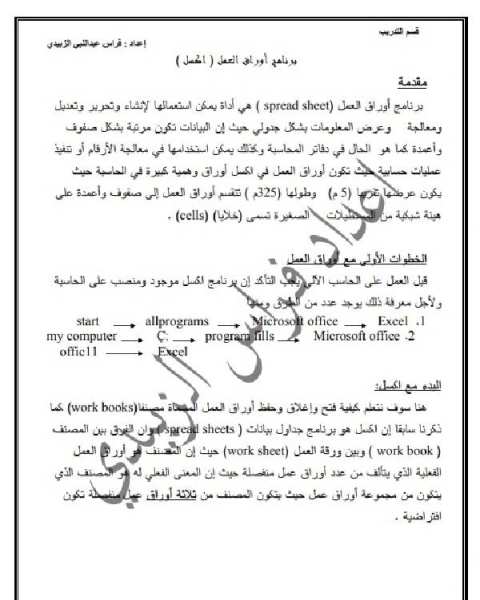 قسم التدريب
إعداد : فراس عبدالنبي الزبيدي
برنامج أوراق العمل ( اكسل )
مقدمة
برنامج أوراق العمل (spread sheet ) هي أداة يمكن استعمالها لإنشاء وتحرير وتعديل
ومعالجة وعرض المعلومات بشكل جدولي حيث إن البيانات تكون مرتبة بشكل صفوف
وأعمدة كما هو الحال في دفاتر المحاسبة وكذلك يمكن استخدامها في معالجة الأرقام أو تنفيذ
عمليات حسابية حيث تكون أوراق العمل في اكسل أوراق وهمية كبيرة في الحاسبة حيث
يكون عرضها تقريبا (5 م) وطولها (325م ) تتقسم أوراق العمل إلى صفوف وأعمدة على
هيئة شبكية من المستطيلات الصغيرة تسمى (خلايا) (cells) .
الخطوات الأولي مع أوراق العمل
قبل العمل على الحاسب الآلي يجب التأكد إن برنامج اكسل موجود ومنصب على الحاسبة
ولأجل معرفة ذلك يوجد عدد من الطرق ومنها
1. start → allprograms → Microsoft office → Excel
2. my computer → C: → program fills → Microsoft office
→ offic11 → Excel
البدء مع اكسل:
هنا سوف نتعلم كيفية فتح وإغلاق وحفظ أوراق العمل المسماة مصنفا(work books) كما
ذكرنا سابقا إن اكسل هو برنامج جداول بيانات ( spread sheets) وان الفرق بين المصنف
( work book ) وبين ورقة العمل (work sheet) حيث إن المصنف هو أوراق العمل
الفعلية الذي يتألف من عدد أوراق عمل منفصلة حيث إن المعنى الفعلي له هو المصنف الذي
يتكون من مجموعة أوراق عمل حيث يتكون المصنف من ثلاثة أوراق عمل منفصلة تكون
افتراضية .
اعداد فراس الزبيدي